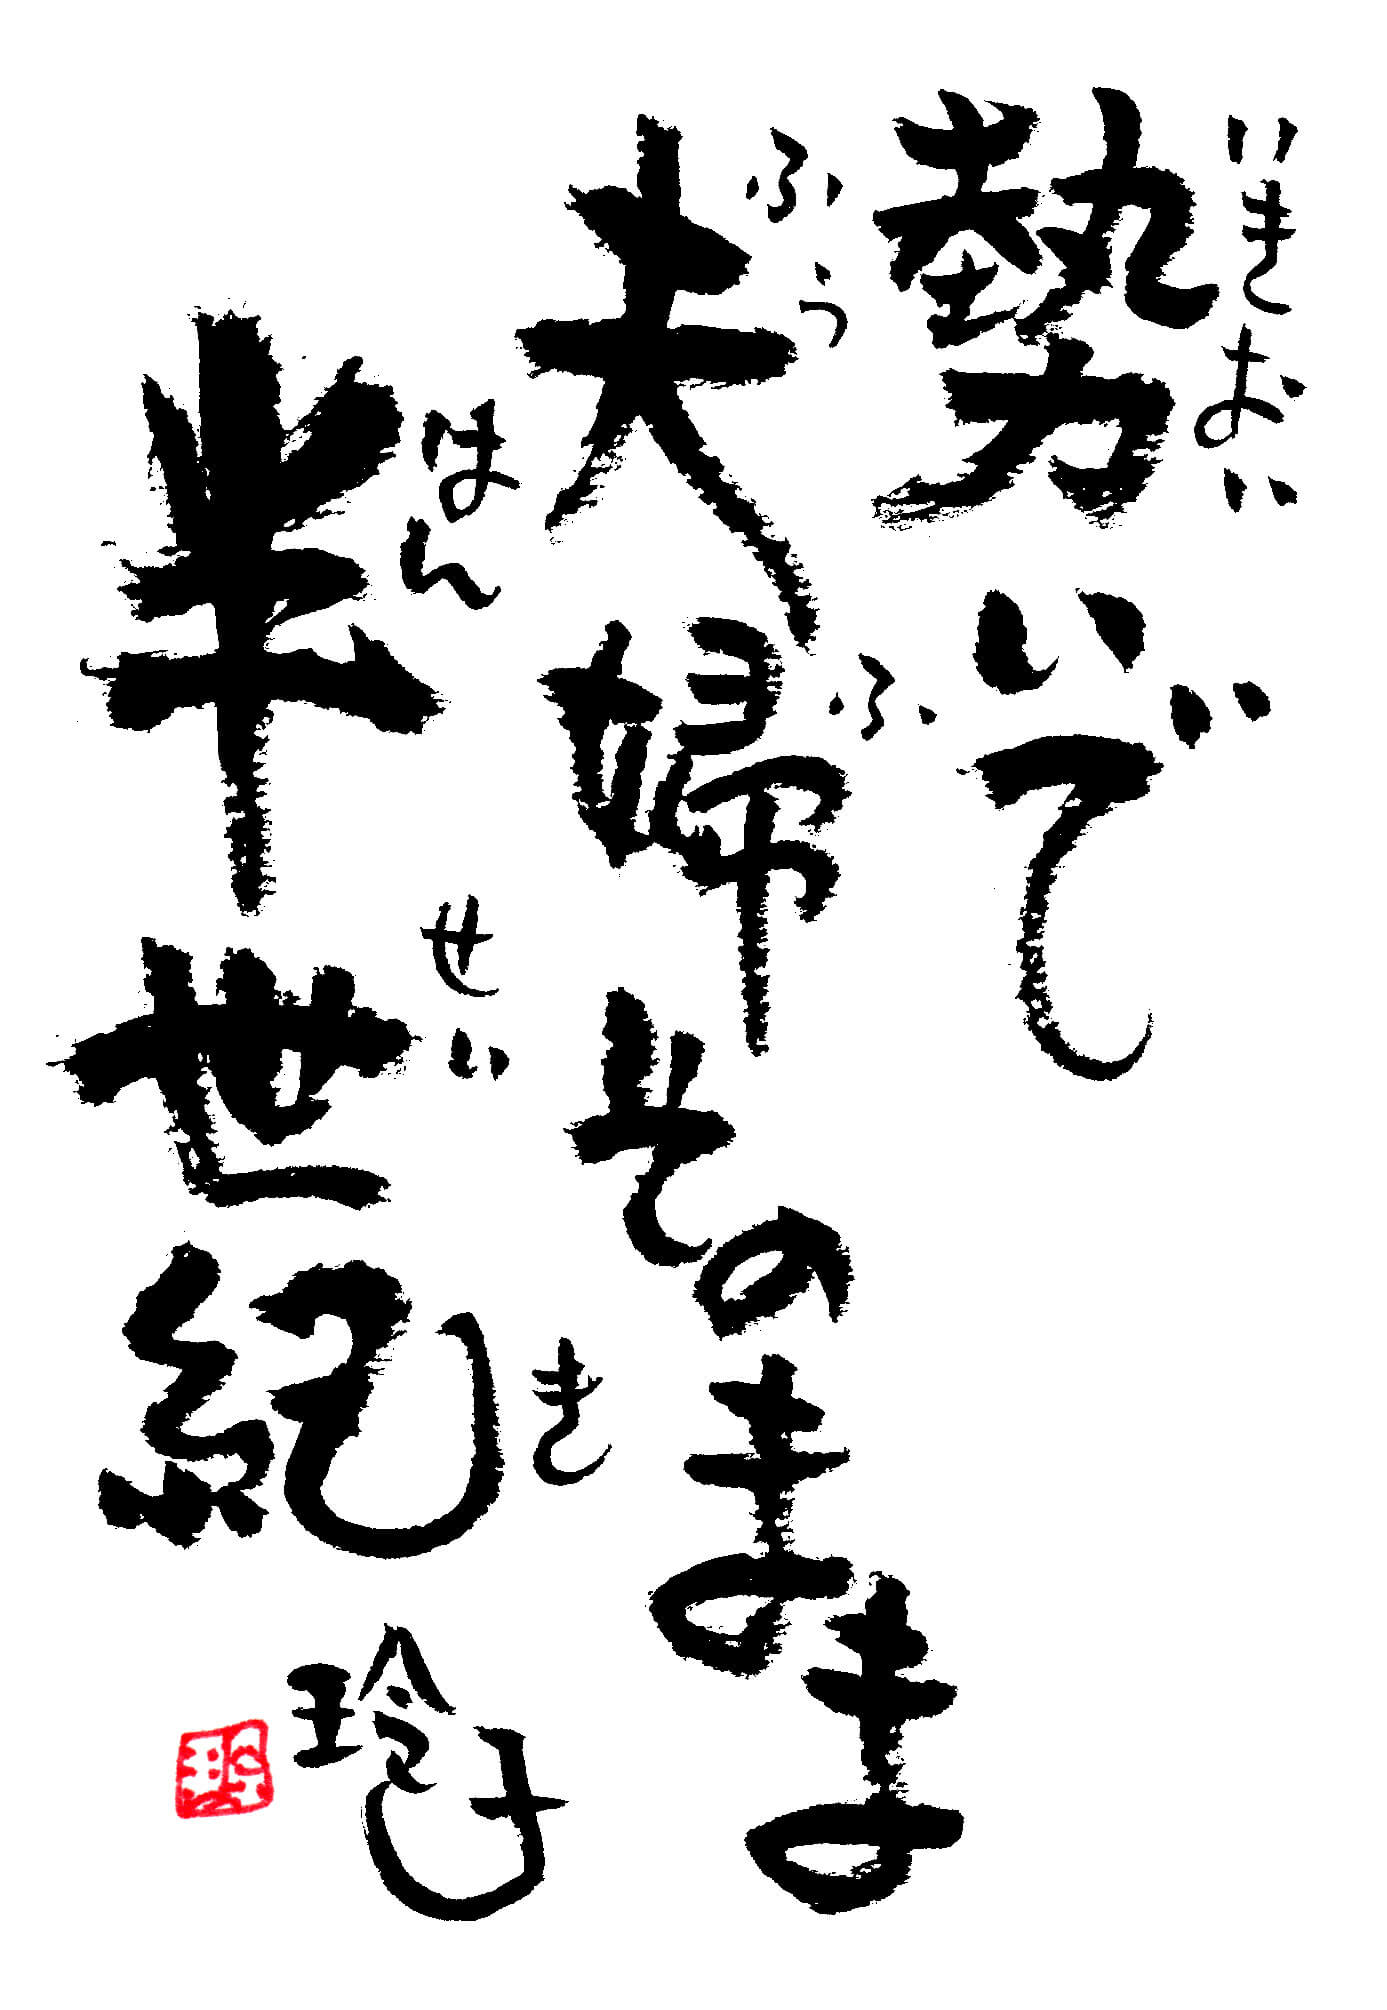 勢いで
いきおい
夫婦そのまま
ふうふ
半世紀
はんせいき
玲子